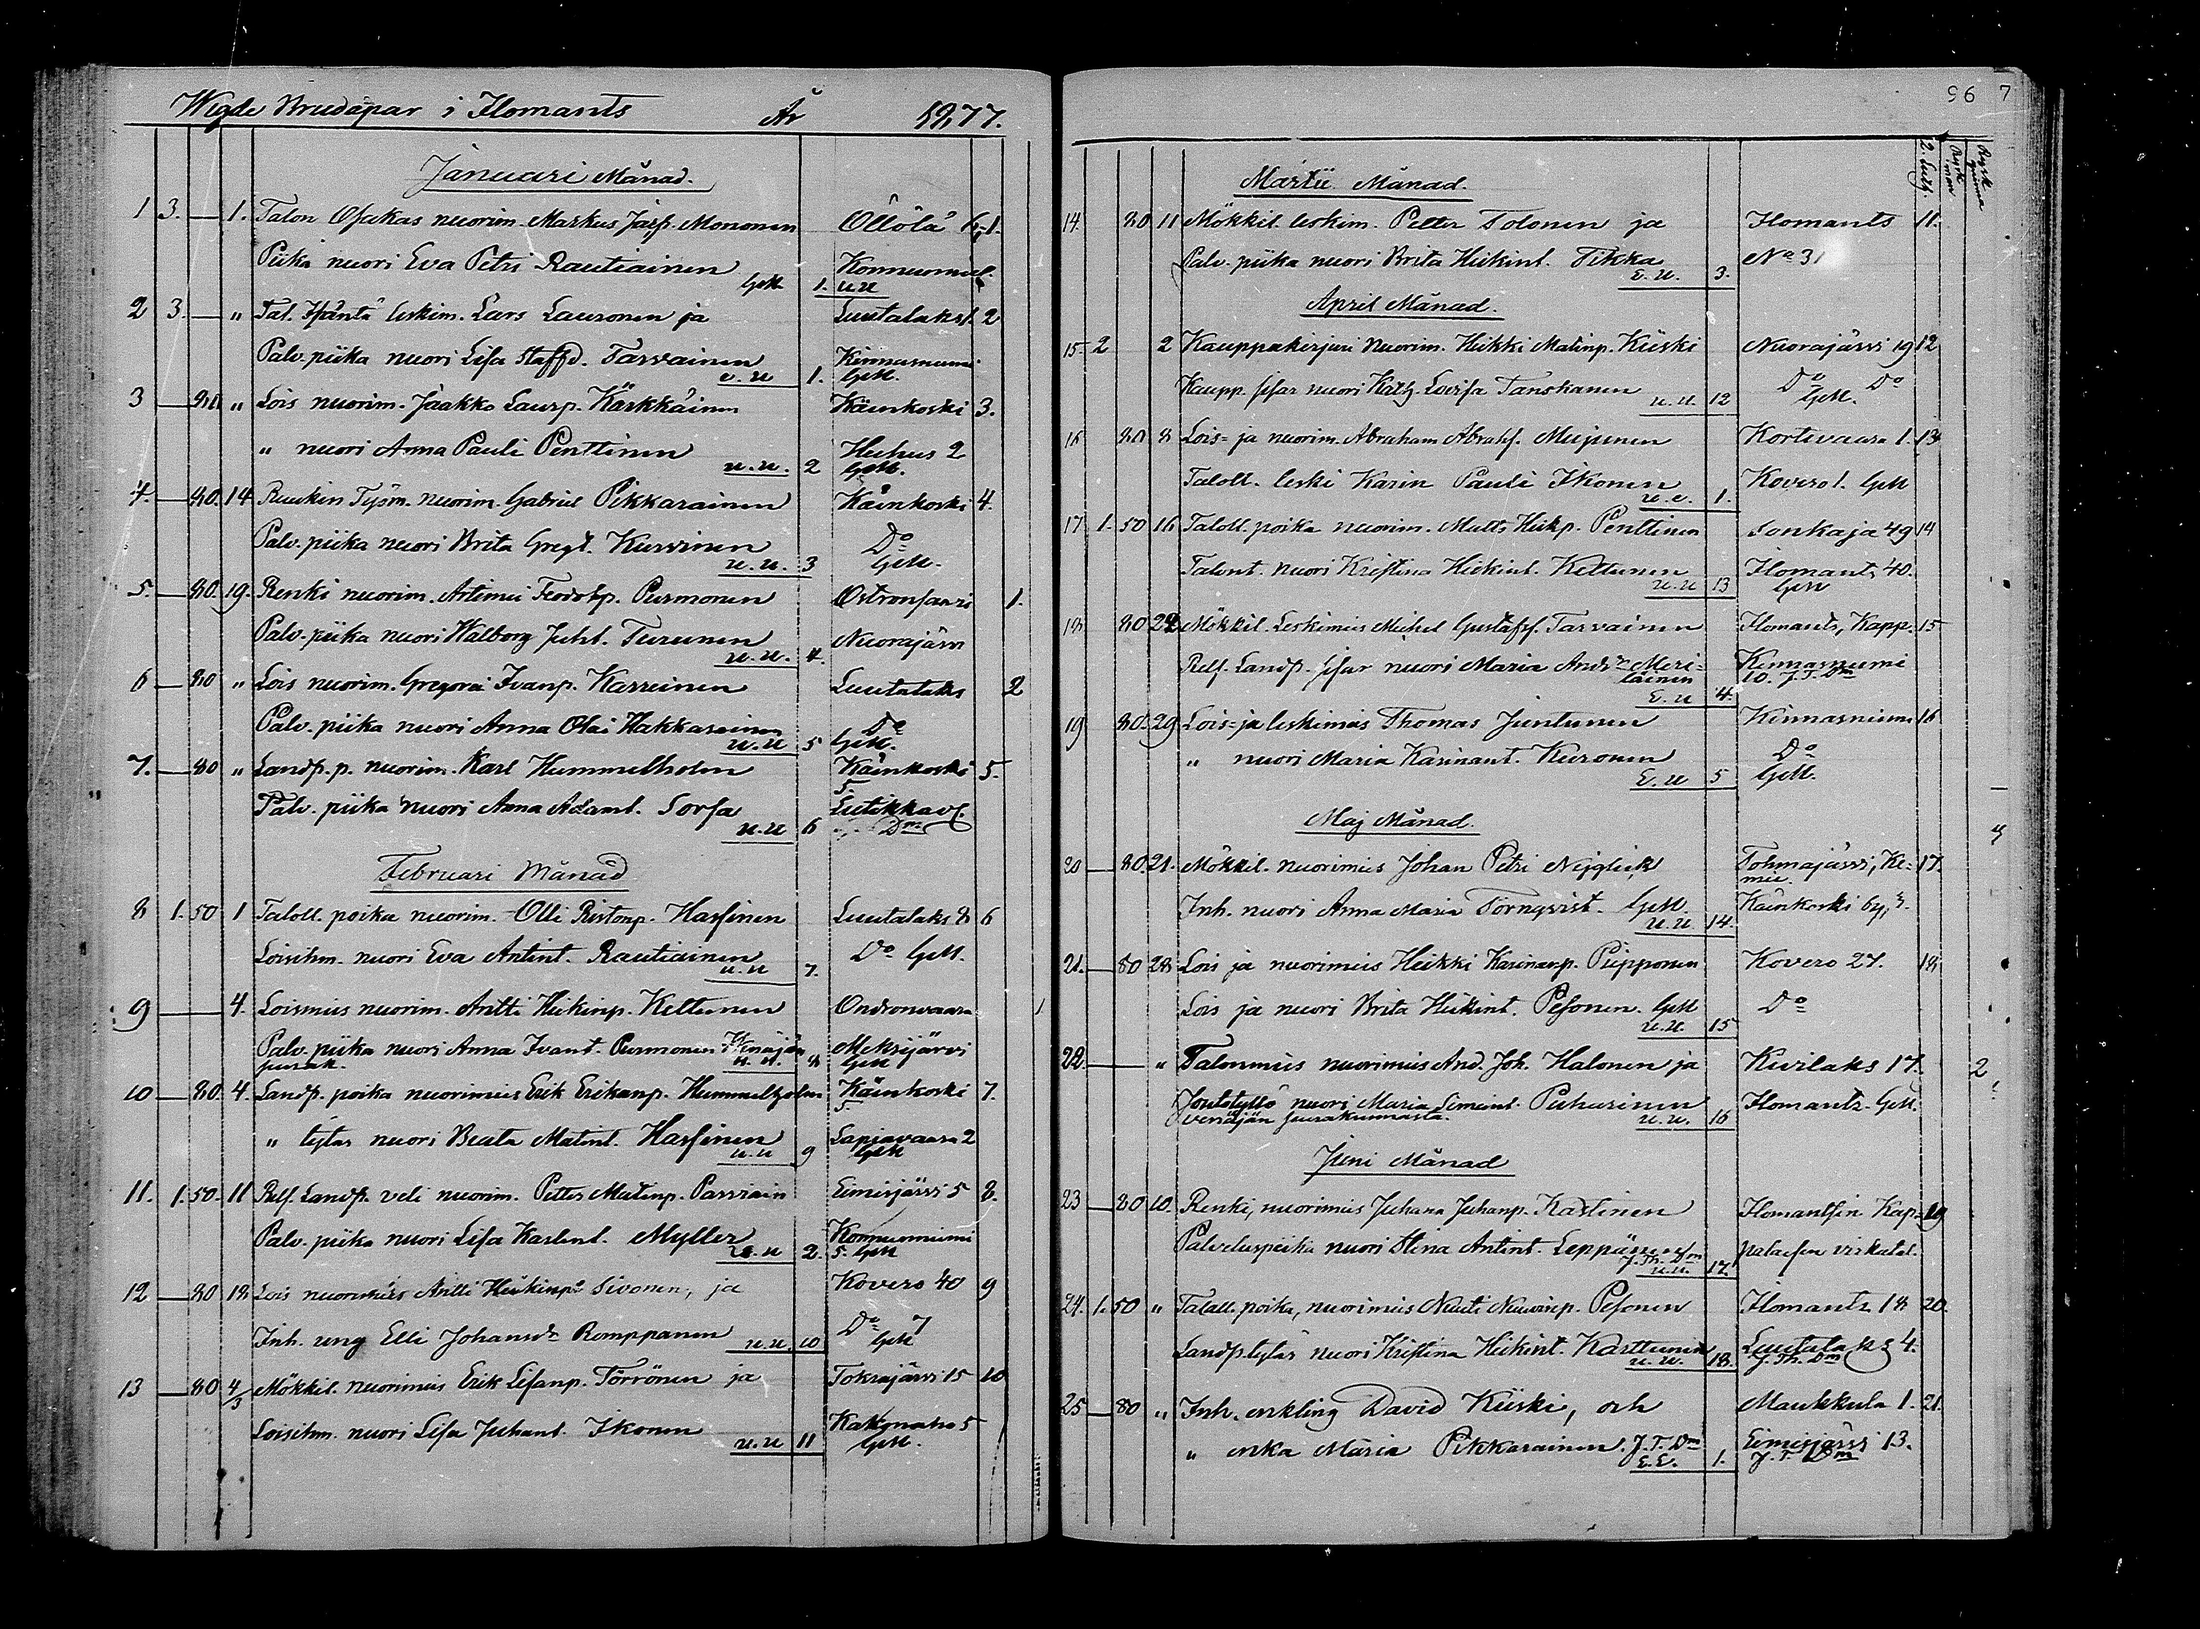 Wigde Brudåpar i Ilomants År 1877.
Januari Månad.
1 3. — 1. Talon Osakas nuorim. Markus Jäsp. Mononen Öllölä 6. 1.
Piika nuori Eva Petri Rautiainen GM 1. Konnunniemi u.u
2 3. — " Tal. Isäntä leskim. Lars Lauronen ja Luutalaks 1. 2
Palv. piika nuori Lisa Staffd. Tarvainen e.u 1. Kinnasniemi GM.
3 — 80 " Lois nuorim. Jaakko Laurp. Kärkkäinen Käenkoski 3.
" nuori Anna Pauli Penttinen u.u. 2 Huhus 2 GM.
4. — 80. 14 Ruukin Työm. nuorim. Gabriel Pikkarainen Käenkoski 4.
Palv. piika nuori Brita Gregt. Kurvinen u.u. 3 Do GM.
5 — 80. 19. Renki nuorim. Artimii Feodotp. Purmonen Ostronsaari 1.
Palv. piika nuori Walborg Juht. Turunen u.u. 4. Nuorajärvi
6 — 80 " Lois nuorim. Gregorei Ivanp. Karreinen Luutalaks 2
Palv. piika nuori Anna Olai Hakkarainen u.u 5 Do GM.
7. — 80 " Landp. p. nuorim. Karl Hummelholm Käenkoski 5. 5.
Palv. piika nuori Anna Adamt. Sorsa u.u 6 Lutikkav. Dm
Februari Månad
8 1. 50 1 Taloll. poika nuorim. Olli Ristonp. Hassinen Luutalaks 8 6
Loisihm. nuori Eva Antint. Rautiainen u.u 7. Do GM.
9 — 4. Loismies nuorim. Antti Heikinp. Kettunen Ondronvaara 1
Palv. piika nuori Anna Ivant. Purmonen Wenäjän u.u. 8 Mekrijärvi
surak. GM
10 — 80. 4. Landp. poika nuorimies Erik Erikanp. Hummelholm Käenkoski 5. 7.
" tytär nuori Beata Matint. Hassinen u.u 9 Lapiovaara 2 GM
11. 1. 50. 11 Relf. Landp. veli nuorim. Petter Matinp. Parviain Eimisjärvi 5 8.
Palv. piika nuori Lisa Karlent. Myller e.u 2. Konnunniemi 5. GM
12 — 80 18 Lois nuorimies Antti Heikinp. Sivonen, ja Kovero 40 9
Inh. ung Elli Johansdr Romppanen u.u. 10 Do 7 GM
13 — 80 4/3 Mökkil. nuorimies Erik Lisanp. Törrönen ja Tokrajärvi 15 10
Loisihm. nuori Lisa Juhant. Ikonen u.u 11 Kakonaho 5 GM.
96 7
2. Luth. Rysk man Rysk qvinna
Martii Månad.
14. 80 11 Mökkil. leskim. Petter Tolonen ja Ilomants 11.
Palv. piika nuori Brita Heikint. Tikka E.u. 3. No 31
April Månad.
15. 2 2 Kauppakirjuri Nuorim. Heikki Matinp. Kiiski Nuorajärvi 19 12
Kaupp. sisar nuori Kath. Lovisa Tanskanen u.u. 12 Do Do GM.
16 80 8 Lois- ja nuorim. Abraham Abrahf. Muijunen Kortevaara 1. 13
Taloll. leski Karin Pauli Ikonen u.e. 1. Kovero 1. GM
17 1. 50 16 Taloll. poika nuorim. Matts Heikp. Penttinen Sonkaja 49 14
Talont. nuori Kristina Heikint. Kettunen u.u 13 Ilomants 40. GM
18 80 22 Mökkil. Leskimies Mikel Gustafsf. Tarvainen Ilomants, Kapp. 15
Relf. Landp. sisar nuori Maria Andsdr Meri-
läinen E.u 4. Kinnasniemi 10. J.T. Dm
19 80. 29 Lois- ja leskimies Thomas Juntunen Kinnasniemi 16
" nuori Maria Karinant. Kuronen E.u 5 Do GM.
Maj Månad.
20 — 80. 21. Mökkil. nuorimies Johan Petri Nejglick Tohmajärvi, Ke-
mie. 17.
Inh. nuori Anna Maria Törnqvist. GM. u.u. 14. Käenkoski
21. — 80 28 Lois ja nuorimies Heikki Karinanp. Piipponen Kovero 27. 18
Lois ja nuori Brita Heikint. Pesonen. GM u.u. 15 Do
22. — " Talonmies nuorimies And. Joh. Halonen ja Kuvilaks 17. 2
Joutotyttö nuori Maria Simeint. Puhurinen u.u. 16 Ilomants. GM.
venäjän seurakunnasta.
Juni Månad
23 — 80 10. Renki, nuorimies Juhana Juhanp. Kastinen Ilomantsin Kap- 19
Palveluspiika nuori Stina Antint. Leppänen J.Th. Dm u.u. 17. palaisen virkatal.
24. 1. 50 " Taloll. poika, nuorimies Nuuti Nuutinp. Pesonen Ilomants 18 20.
Landp. tytär nuori Kristina Heikint. Karttunen u.u. 18. Luutalaks 4. J.Th. Dm
25 — 80 " Inh. enkling David Kiiski, och Maukkula 1. 21.
" enka Maria Pikkarainen. J.T. Dm E.E. 1. Eimisjärvi 13. J.T. Dm